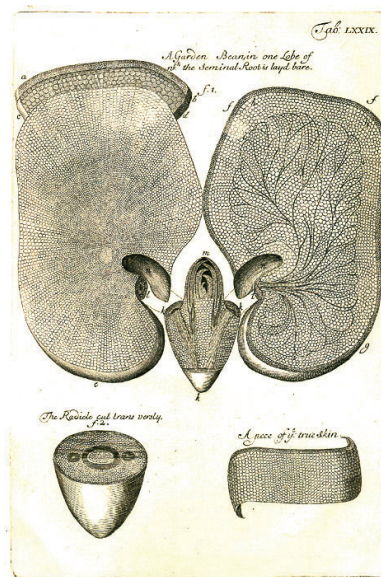 Tab: LXXIX.
A Garden Bean, in one Lobe of
wch the Seminal Root is layd bare.
a
f. 1.
b
c
d
f
f
m
g
e
k
The Radicle cut transversly.
f. 2.
A peece of ye true skin